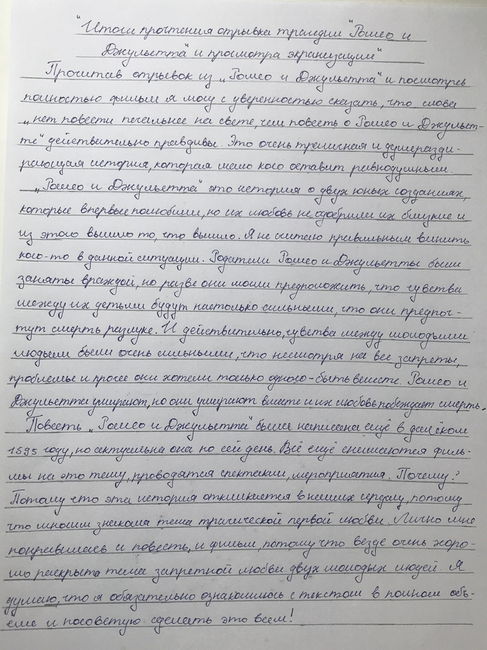 "Итоги прочтения отрывка трагедии "Ромео и
Джульетта" и просмотра экранизации"
Прочитав отрывок из „Ромео и Джульетта" и посмотрев
полностью фильм я могу с уверенностью сказать, что слова
„нет повести печальнее на свете, чем повесть о Ромео и Джульет-
те" действительно правдивы. Это очень трагичная и душеразди-
рающая история, которая мало кого оставит равнодушным.
„Ромео и Джульетта" это история о двух юных созданиях,
которые впервые полюбили, но их любовь не одобрили их близкие и
из этого вышло то, что вышло. Я не считаю правильным винить
кого-то в данной ситуации. Родители Ромео и Джульетты были
заняты враждой, но разве они могли предположить, что чувства
между их детьми будут настолько сильными, что они предпоч-
тут смерть разлуке. И действительно, чувства между молодыми
людьми были очень сильными, что несмотря на все запреты,
проблемы и прочее они хотели только одного-быть вместе. Ромео и
Джульетта умирают, но они умирают вместе и их любовь побеждает смерть.
Повесть „Ромео и Джульетта" была написана ещё в далёком
1595 году, но актуальна она по сей день. Всё ещё снимаются филь-
мы на эту тему, проводятся спектакли, мероприятия. Почему?
Потому что эта история откликается в наших сердцах, потому
что многим знакома тема трагической первой любви. Лично мне
понравилась и повесть, и фильм, потому что везде очень хоро-
шо раскрыта тема запретной любви двух молодых людей. Я
думаю, что я обязательно ознакомлюсь с текстом в полном объ-
ёме и посоветую сделать это всем!